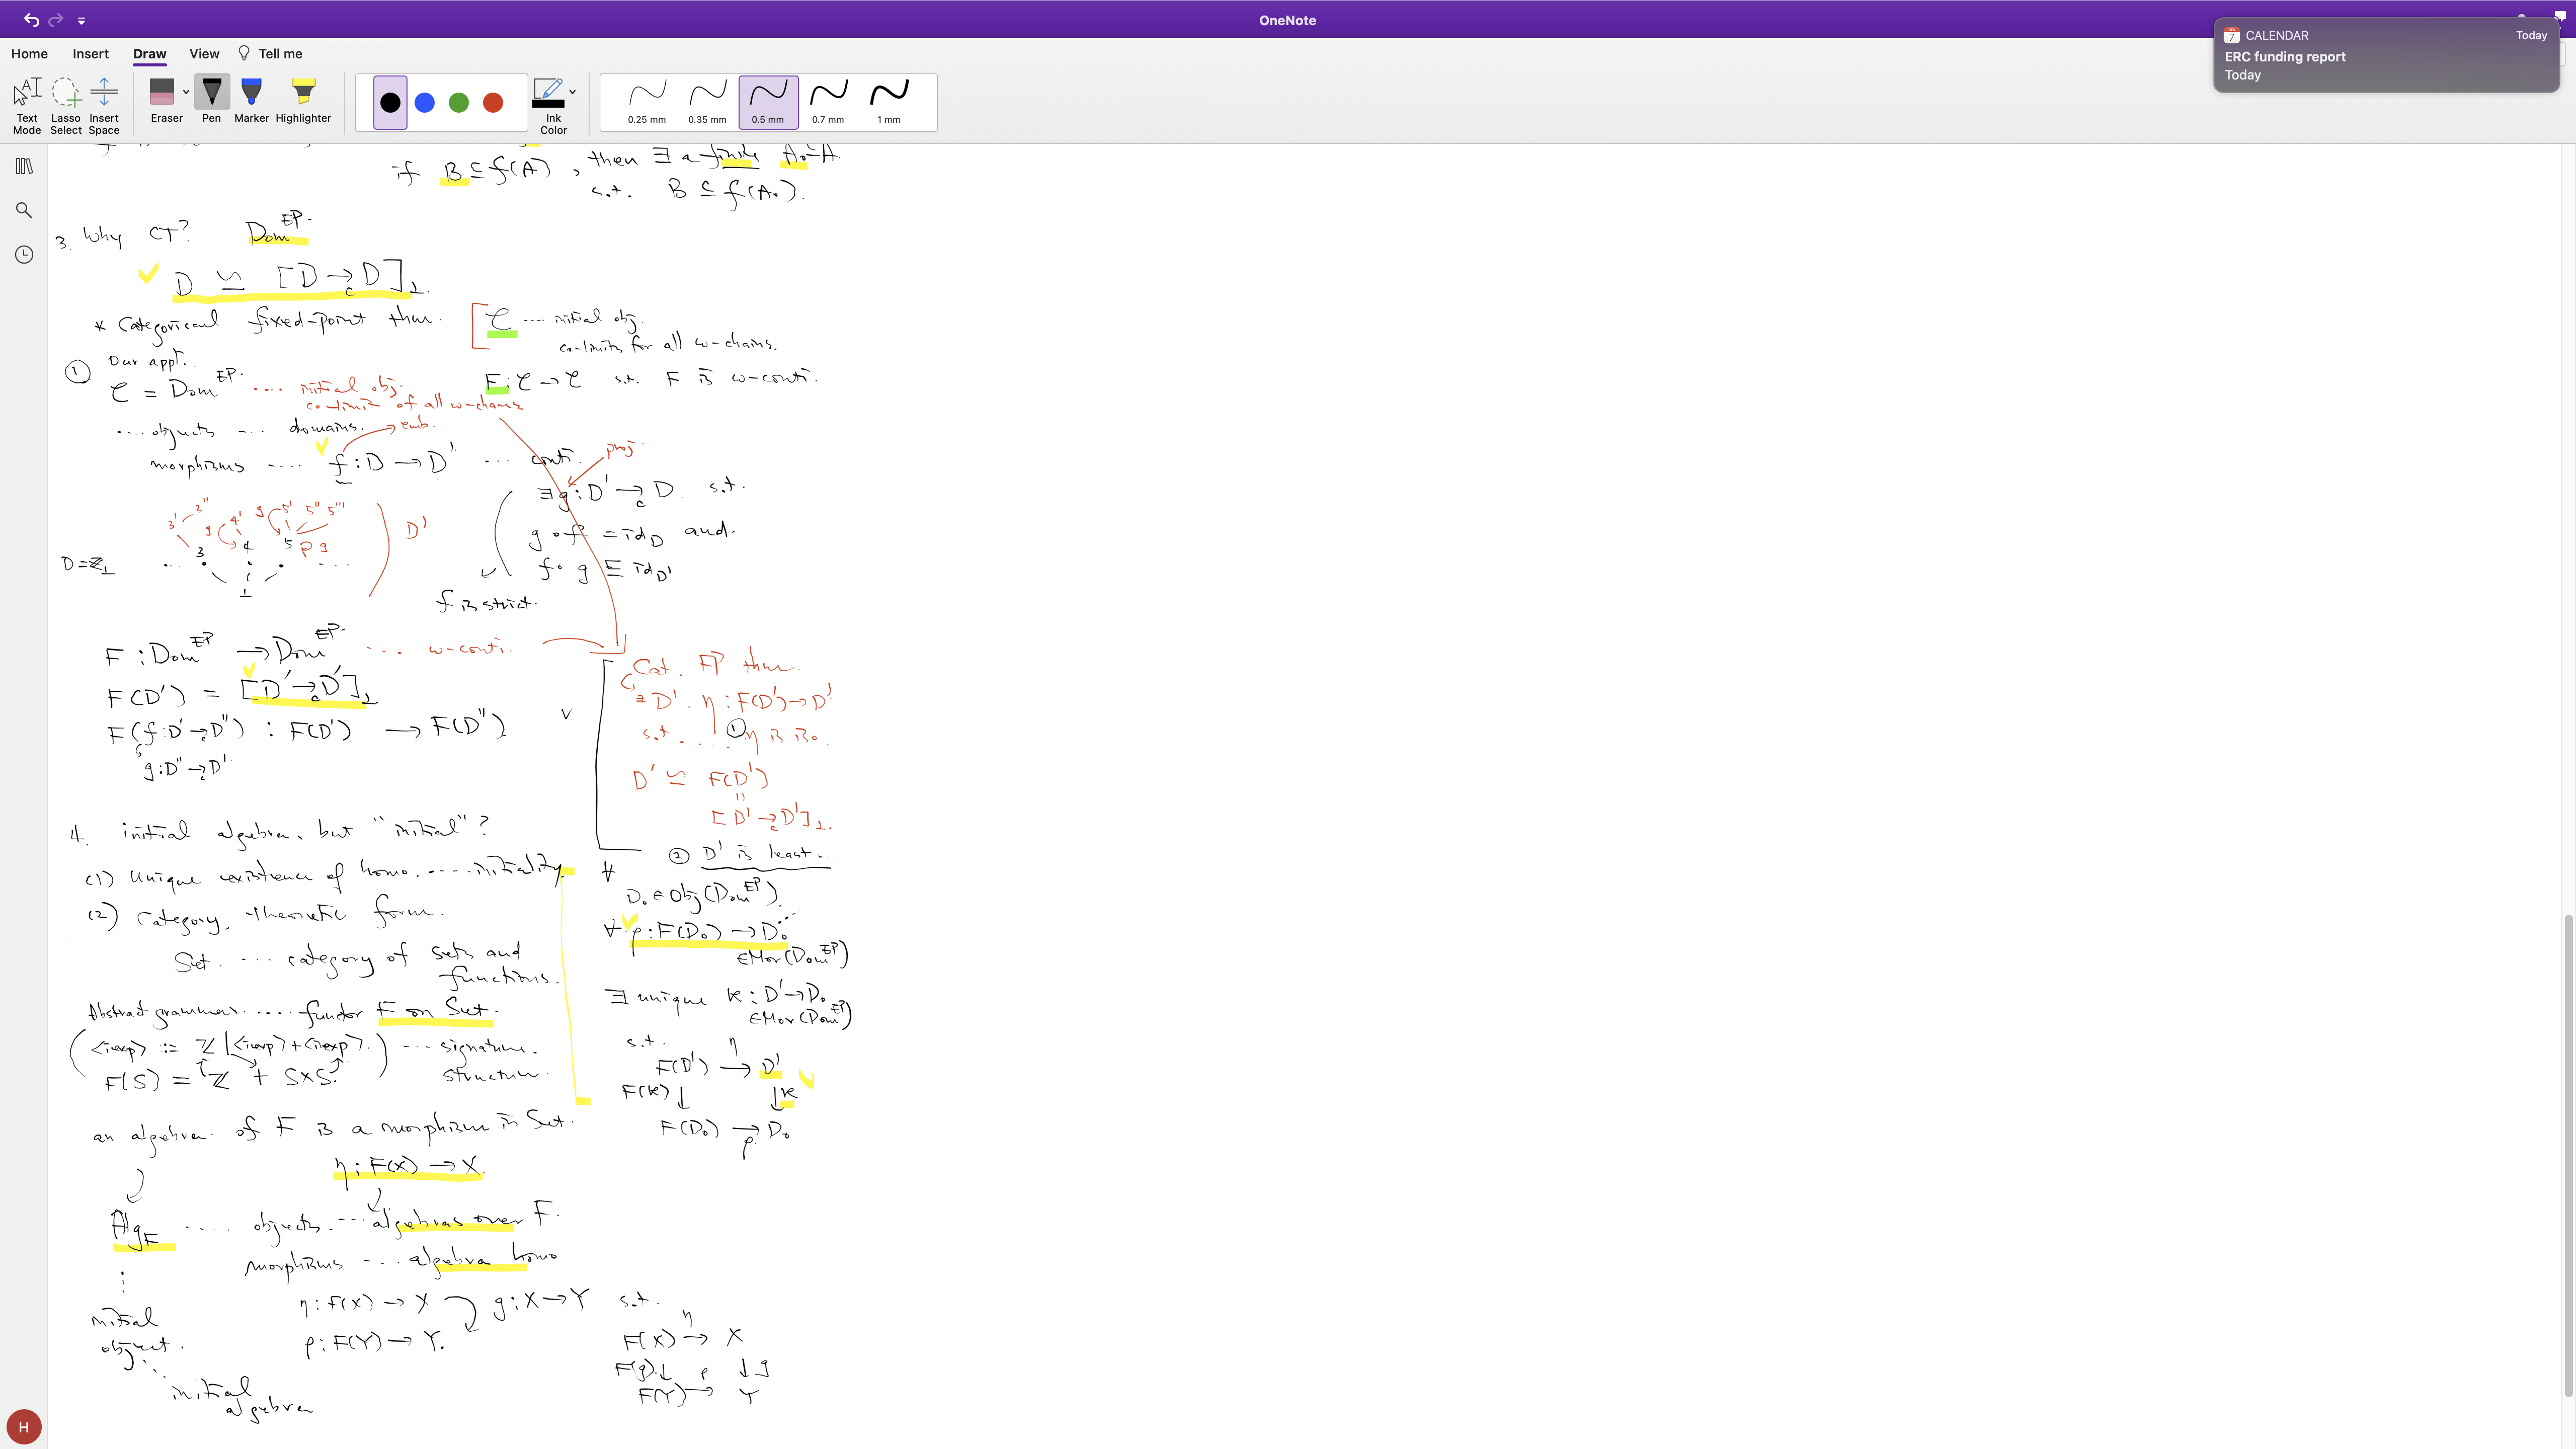 OneNote
CALENDAR Today
ERC funding report
Today
Home Insert Draw View Tell me
Text Mode
Lasso Select
Insert Space
Eraser
Pen
Marker
Highlighter
Ink Color
0.25 mm 0.35 mm 0.5 mm 0.7 mm 1 mm
if B ⊆ f(A), then ∃ a finite A₀ ⊆ A
s.t. B ⊆ f(A₀).
3. Why CT? Dom^EP.
D ≃ [D →c D]⊥.
* Categorical fixed-point thm.
C .... initial obj.
co-limits for all ω-chains.
F : C → C s.t. F is ω-conti.
① Our appl.
C = Dom^EP .... initial obj.
co-limit of all ω-chains
.... objects ... domains.
emb.
morphisms .... f : D → D' ... conti.
proj.
∃ g : D' →c D. s.t.
g ∘ f = id_D and.
f ∘ g ⊑ id_D'
f is strict.
3' 3'' g 4' g 5' 5'' 5'''
D'
3 4 5 g
D = ℤ⊥ ... ...
⊥
F : Dom^EP → Dom^EP. ... ω-conti.
F(D') = [D' →c D']⊥
F(f : D' →c D'') : F(D') → F(D'')
g : D'' →c D'
Cat. FP thm.
∃ D'. η : F(D') → D'
s.t. .... ① η is iso.
D' ≃ F(D')
=
[D' →c D']⊥.
② D' is least...
∀ D₀ ∈ Obj(Dom^EP).
∀ ρ : F(D₀) → D₀
∈ Mor(Dom^EP)
∃ unique k : D' → D₀
∈ Mor(Dom^EP)
s.t.
η
F(D') → D'
F(k) ↓ ↓ k
F(D₀) → D₀
ρ
4. initial algebra, but "initial"?
(1) Unique existence of homo. .... initiality.
(2) Category, theoretic form.
Set. ... category of sets and
functions.
Abstract grammar .... functor F on Set.
(<iexp> ::= ℤ | <iexp> + <iexp>.) ... signature.
F(S) = ℤ + S×S. structure.
an algebra. of F is a morphism in Set.
η : F(X) → X.
Alg_F .... objects. ... algebras over F.
morphisms ... algebra homo
η : F(X) → X g : X → Y s.t.
ρ : F(Y) → Y.
initial
object.
initial
algebra
η
F(X) → X
F(g) ↓ ρ ↓ g
F(Y) → Y
H